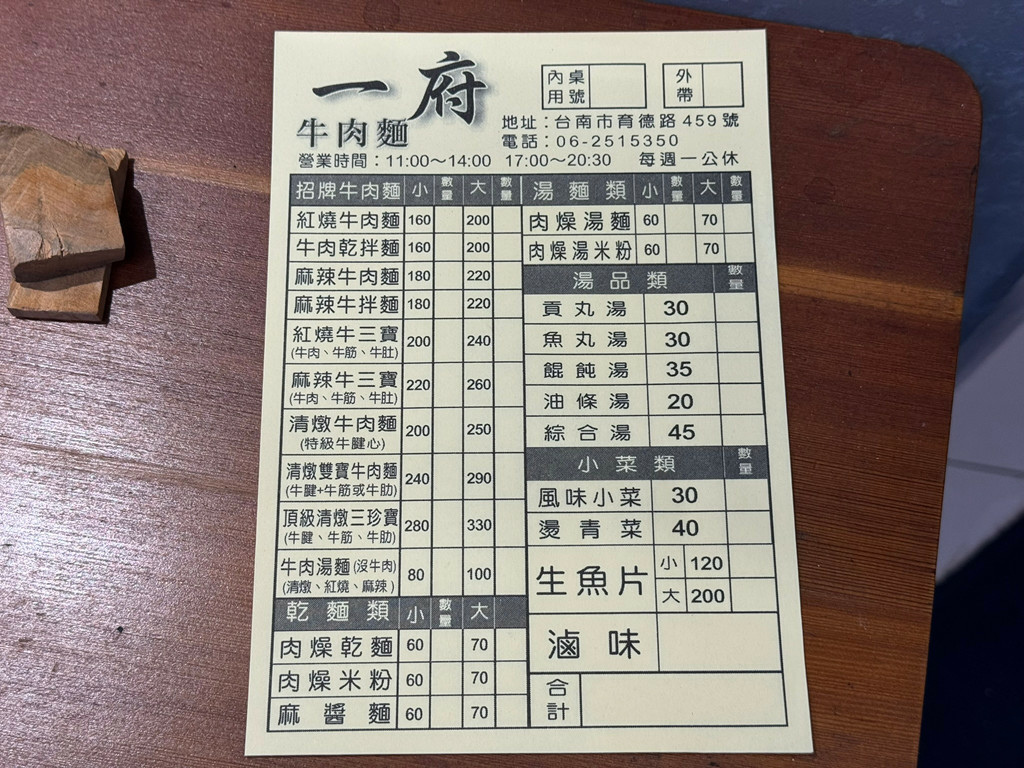 一府
牛肉麵
內用 桌號
外帶
地址：台南市育德路459號
電話：06-2515350
營業時間：11:00～14:00 17:00～20:30 每週一公休
招牌牛肉麵 小 數量 大 數量
紅燒牛肉麵 160 200
牛肉乾拌麵 160 200
麻辣牛肉麵 180 220
麻辣牛拌麵 180 220
紅燒牛三寶 200 240
(牛肉、牛筋、牛肚)
麻辣牛三寶 220 260
(牛肉、牛筋、牛肚)
清燉牛肉麵 200 250
(特級牛腱心)
清燉雙寶牛肉麵 240 290
(牛腱+牛筋或牛肋)
頂級清燉三珍寶 280 330
(牛腱、牛筋、牛肋)
牛肉湯麵(沒牛肉) 80 100
(清燉、紅燒、麻辣)
乾麵類 小 數量 大
肉燥乾麵 60 70
肉燥米粉 60 70
麻醬麵 60 70
湯麵類 小 數量 大 數量
肉燥湯麵 60 70
肉燥湯米粉 60 70
湯品類 數量
貢丸湯 30
魚丸湯 30
餛飩湯 35
油條湯 20
綜合湯 45
小菜類 數量
風味小菜 30
燙青菜 40
生魚片 小 120
大 200
滷味
合計